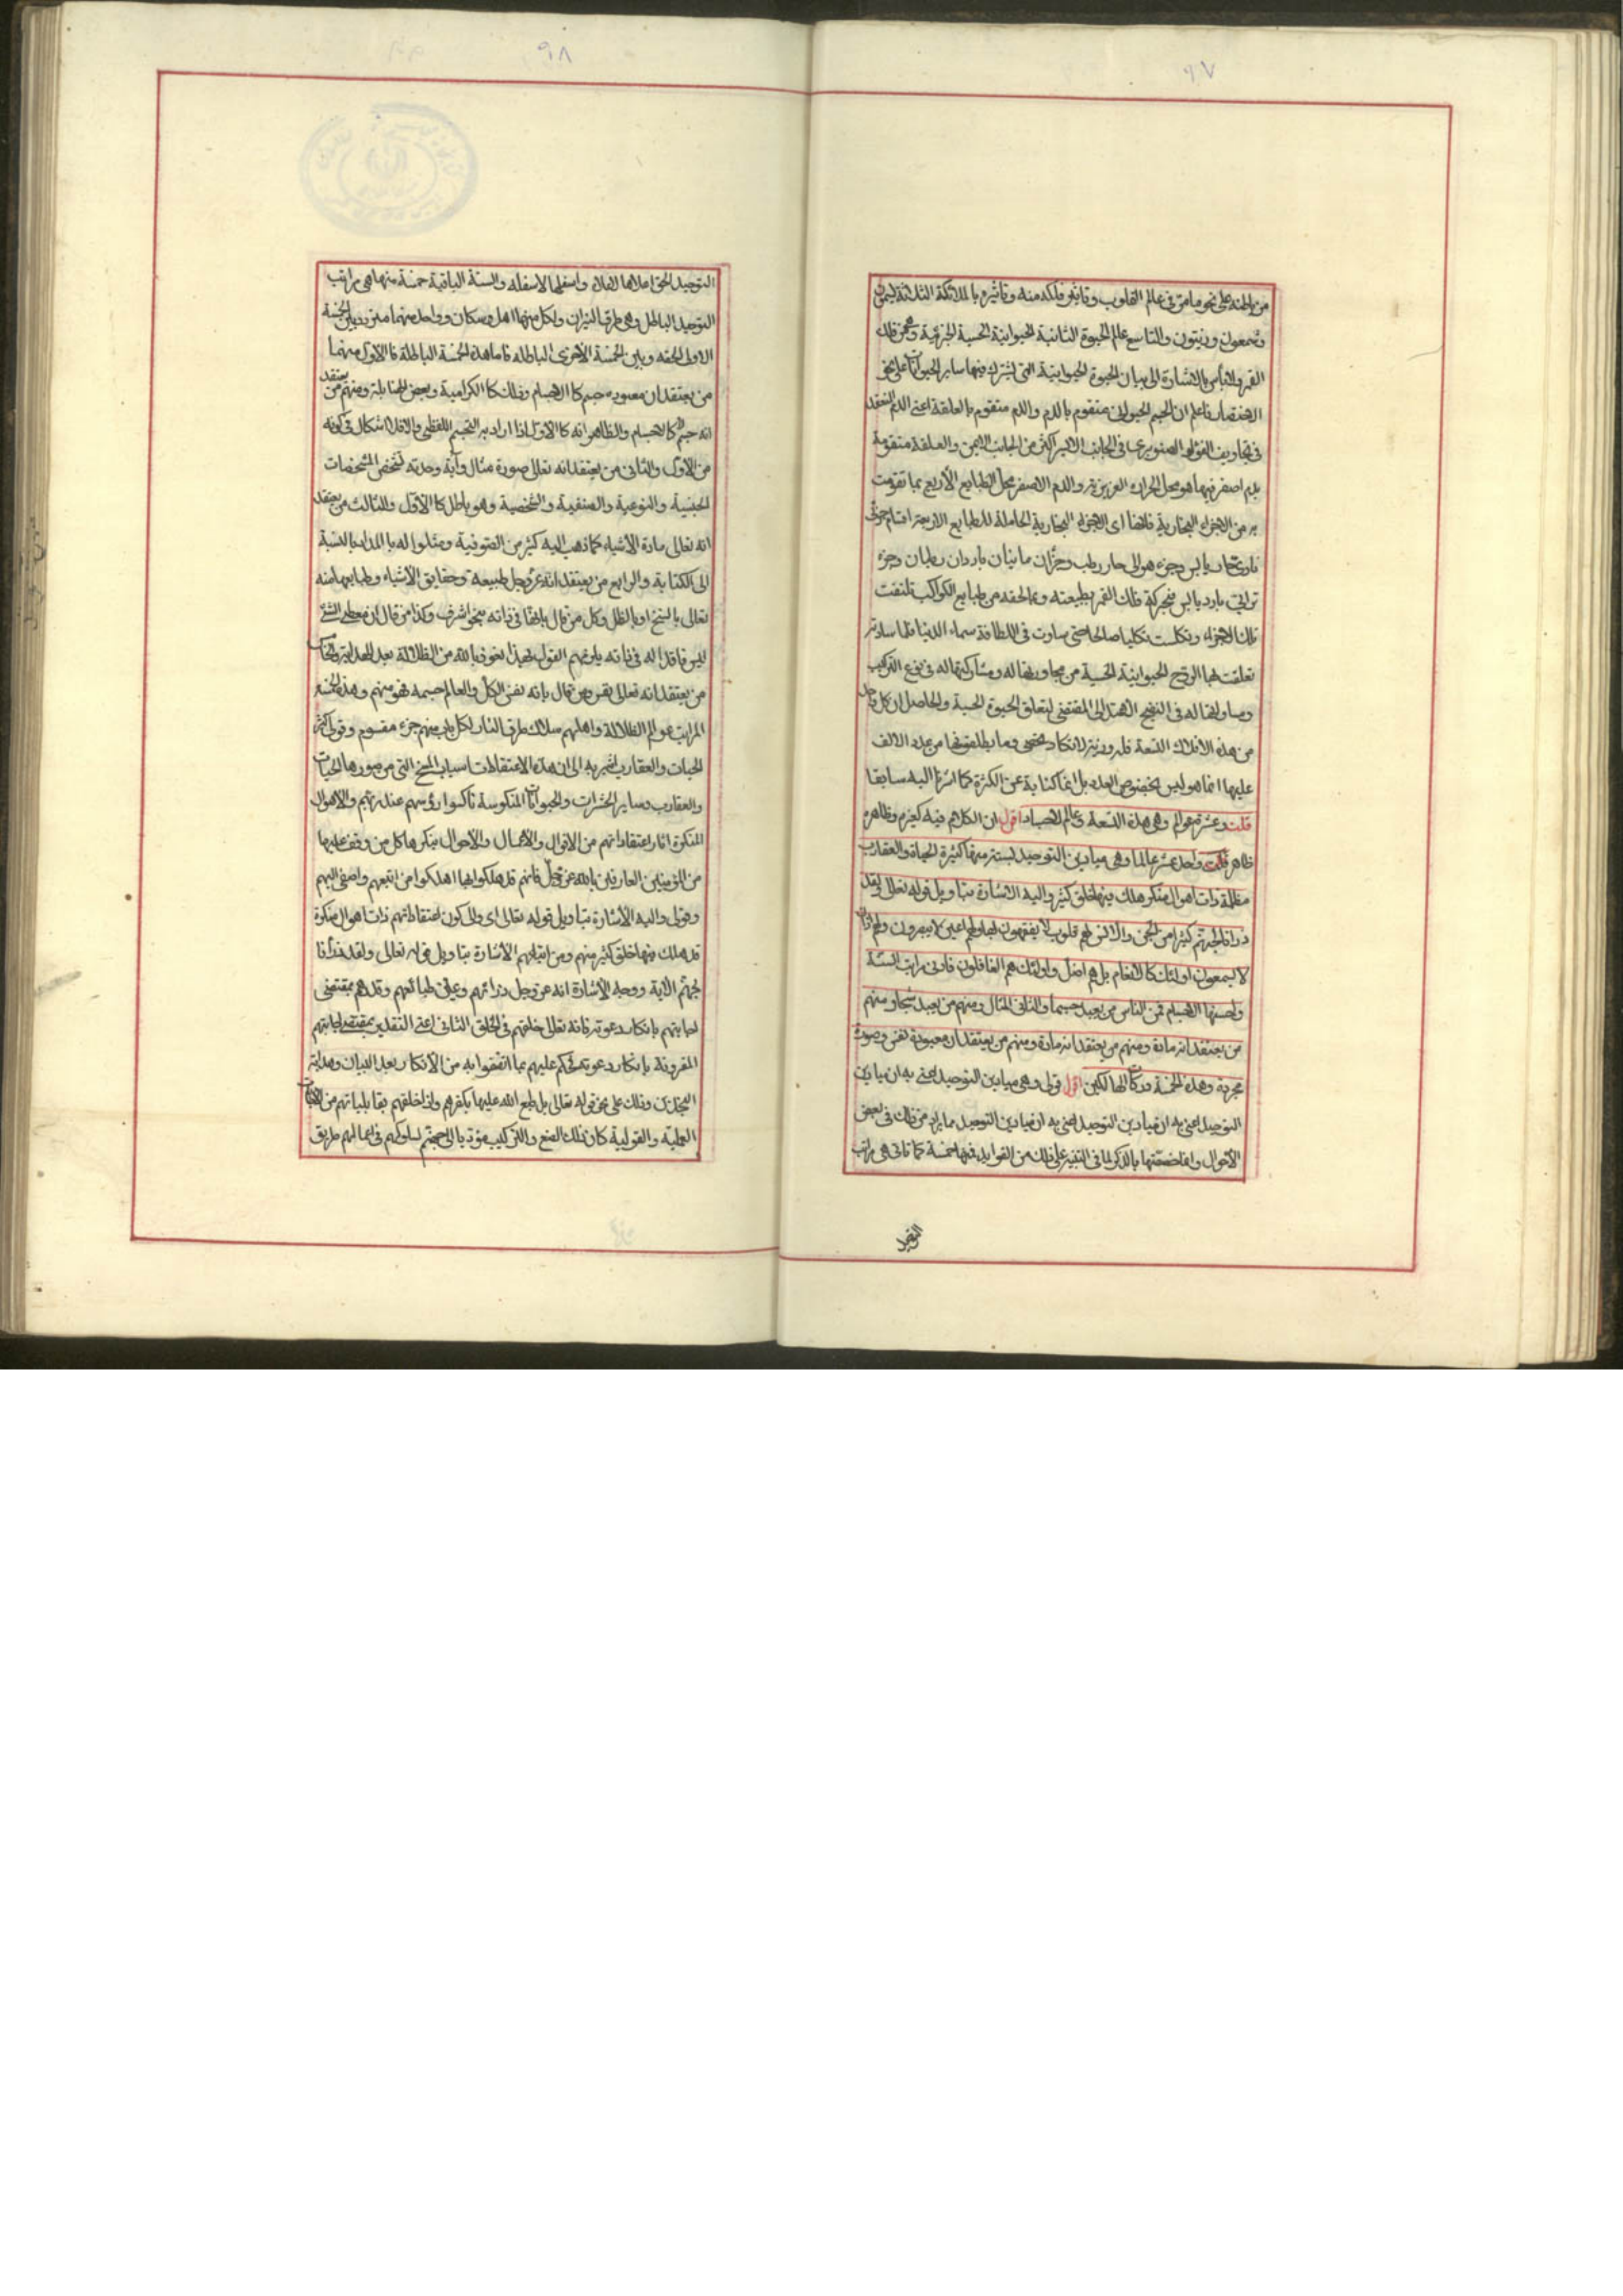 ٩٧
من باطنه على نحو ما مر في عالم القلوب وتأثير فلكه منه وتأثيره بالملائكة الثلاثة سيمون
وشمعون وزيتون والتاسع عالم الحيوة الثانية الحيوانية الحسية الجزئية وهي من فلك
القمر ولا بأس بالاشارة الى بيان الحيوة الحيوانية التي تشترك فيها ساير الحيوانات على نحو
الاختصار فاعلم ان الجسم الحيواني متقوم بالدم والدم متقوم بالعلقة اعني الدم المنعقد
في تجاويف الصنوبري في الجانب الايسر اكثر من الجانب الايمن والعلقة متقومة
بدم اصفر فيها هو محل الحرارة الغريزية والدم الاصفر محل الطبايع الأربع بما تقومت
به من الاجزاء البخارية فانها اى الاجزاء البخارية الحاملة للطبايع الاربعة اقسام جزء
ناري حار يابس وجزء هوائي حار رطب وجزآن مائيان باردان رطبان وجزء
ترابي بارد يابس فبحركة فلك القمر بطبيعته وبما لحقه من طبايع الكواكب تلطفت
تلك الاجزاء وتكلست تكليسا صالحا حتى ساوت في اللطافة سماء الدنيا فلما ساوته
تعلقت بها الروح الحيوانية الحسية من مجاورتها له ومشاركتها له في نوع التركيب
ومساواتها له في النضج الاعتدالي المقتضي لتعلق الحيوة الحسية والحاصل ان كل واحد
من هذه الافلاك التسعة فله وزيره لا تكاد تحصى وما يطلقونها من عدد الالف
عليها انما هو ليس بخصوص العدد بل انما كناية عن الكثرة كما اشرنا اليه سابقا
قلت وعشرة عوالم وهي هذه التسعة وعالم الاجساد اقول ان الكلام فيه كغيره وظاهره
ظاهر قلت واحد عشر عالما وهي ميادين التوحيد لستة منها كثيرة الحياة والعقارب
مظلمة ذات اهوال منكرة هلك فيها خلق كثير واليه الاشارة بتأويل قوله تعالى ولقد
ذرانا لجهنم كثيرا من الجن والانس لهم قلوب لا يفقهون بها ولهم اعين لا يبصرون ولهم اذان
لا يسمعون اولئك كالانعام بل هم اضل واولئك هم الغافلون فادنى مراتب الستة
واخسها الاجسام فمن الناس من يعبد جسما والثاني المثال ومنهم من يعبد شبحا ومنهم
من يعتقد انه مادة ومنهم من يعتقد انه مادة ومنهم من يعتقد ان معبوده نفس وصورة
مجردة وهذه الخمسة وركابها لكين اقول قولى وهي ميادين التوحيد اعنى به ان ميادين
التوحيد اعنى به ان ميادين التوحيد اعنى به ان ميادين التوحيد مما يراد من ذلك في بعض
الاحوال وانما خصصتها بالذكر لما في التنبيه على ذلك من الفوايد فيها خمسة كما تاتى هي مراتب
التوحيد
٩٨
التوحيد الحق اعلاها الاعلا واسفلها الاسفله والستة الباقية خمسة منها هي مراتب
التوحيد الباطل وهي طرق النيران ولكل منها اهل وسكان وواحد منهما متردد بين الخمسة
الاولى الحقه وبين الخمسة الأخرى الباطله فاما هذه الخمسة الباطلة فالاول منهما
من يعتقد ان معبوده جسم كالاجسام وذلك كالكرامية وبعض الحنابلة ومنهم من يعتقد
انه جسم لا كالاجسام والظاهر انه كالاول اذا اراد به التجسم اللفظي والا فلا اشكال في كونه
من الأول والثاني من يعتقد انه تعالى صورة مثال وآية وحدته تشخص المشخصات
الجنسية والنوعية والصنفية والشخصية وهو باطل كالأول والثالث من يعتقد
انه تعالى مادة الأشياء كما ذهب اليه كثير من الصوفية ومثلوا له بالمداد بالنسبة
الى الكتابة والرابع من يعتقد انه عز وجل طبيعة وحقايق الأشياء وطبايعها منه
تعالى بالسنخ او بالظل وكل من قال بانها في ذاته بنحو اشرف وكذا من قال ان معطى الشئ
ليس فاقدا له في ذاته يلزمهم القول بهذا نعوذ بالله من الضلالة بعد الهداية والخامس
من يعتقد انه تعالى نفس ومن قال بانه نفس الكل والعالم جسمه فهو منهم وهذه الخمسة
المراتب عوالم الضلالة واهلهم سلاك طرق النار لكل باب منهم جزء مقسوم وقولى كثيرة
الحيات والعقارب اشير به الى ان هذه الاعتقادات اسباب المسخ التي من صورها الحيات
والعقارب وساير الحشرات والحيوانات المنكوسة ناكسوا رؤسهم عند ربهم والاهوال
المنكرة اثار اعتقاداتهم من الاقوال والاعمال والأحوال ينكرها كل من وقف عليها
من المؤمنين العارفين بالله عز وجل فانهم قد هلكوا بها اهلكوا من اتبعهم واصغى اليهم
وقولى واليه الأشارة بتأويل قوله تعالى اى والى كون اعتقاداتهم ذات اهوال منكرة
قد هلك فيها خلق كثير منهم ومن اتباعهم الأشارة بتأويل قوله تعالى ولقد ذرأنا
لجهنم الآية ووجه الأشارة انه عز وجل ذرائهم وعلى طبائعهم وقدهم بمقتضى
اجابتهم بانكار دعوته فانه تعالى خلقهم في الخلق الثاني اعنى التقدير بمقتضى اجابتهم
المقرونة بانكار دعوته فحكم عليهم بما اتصفوا به من الأنكار بعد البيان وهداية
النجدين وذلك على نحو قوله تعالى بل طبع الله عليها بكفرهم واذا خلقهم بقابلياتهم من
العملية والقولية كان ذلك الصنع والتركيب مؤديا الى جهنم لسلوكهم في اعمالهم طريق